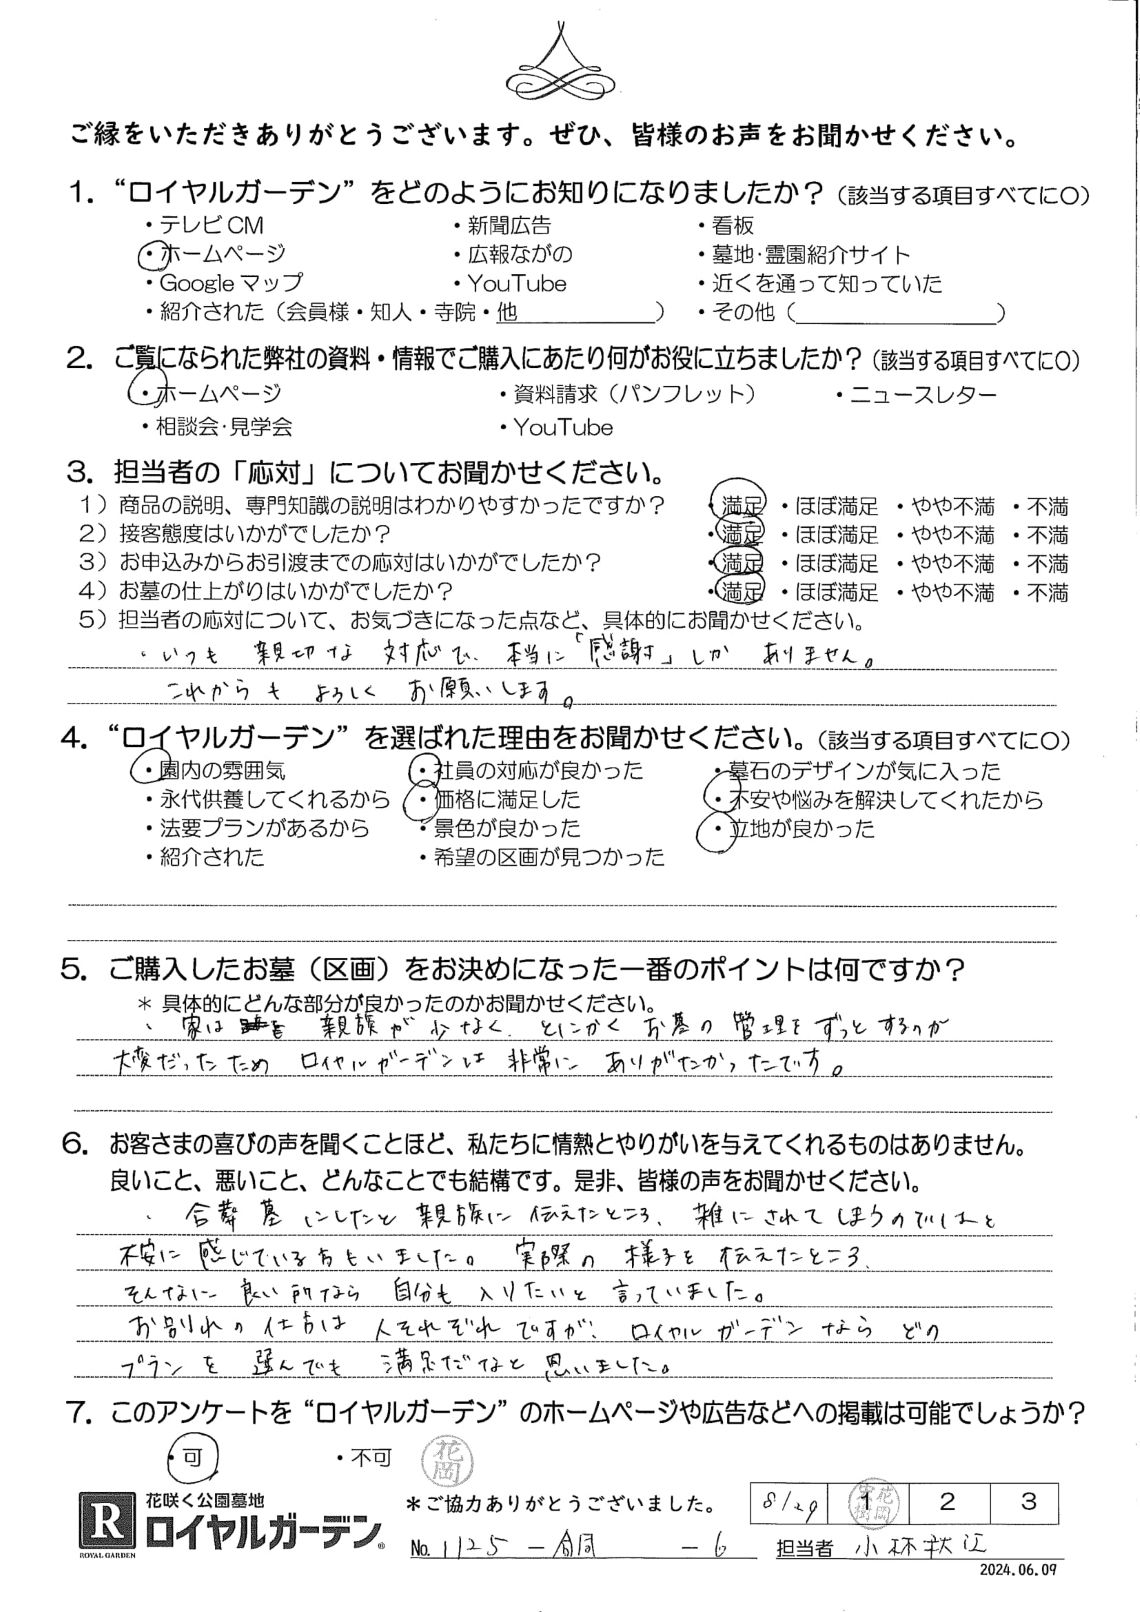 ご縁をいただきありがとうございます。ぜひ、皆様のお声をお聞かせください。
1. “ロイヤルガーデン” をどのようにお知りになりましたか？（該当する項目すべてに〇）
・テレビCM ・新聞広告 ・看板
・ホームページ ・広報ながの ・墓地·霊園紹介サイト
・Google マップ ・YouTube ・近くを通って知っていた
・紹介された（会員様・知人・寺院・他 ） ・その他（ ）
2. ご覧になられた弊社の資料・情報でご購入にあたり何がお役に立ちましたか？（該当する項目すべてに〇）
・ホームページ ・資料請求（パンフレット） ・ニュースレター
・相談会·見学会 ・YouTube
3. 担当者の「応対」についてお聞かせください。
1）商品の説明、専門知識の説明はわかりやすかったですか？ ・満足 ・ほぼ満足 ・やや不満 ・不満
2）接客態度はいかがでしたか？ ・満足 ・ほぼ満足 ・やや不満 ・不満
3）お申込みからお引渡までの応対はいかがでしたか？ ・満足 ・ほぼ満足 ・やや不満 ・不満
4）お墓の仕上がりはいかがでしたか？ ・満足 ・ほぼ満足 ・やや不満 ・不満
5）担当者の応対について、お気づきになった点など、具体的にお聞かせください。
・いつも 親切な 対応で、本当に「感謝」しか ありません。
これからも よろしく お願いします。
4. “ロイヤルガーデン” を選ばれた理由をお聞かせください。（該当する項目すべてに〇）
・園内の雰囲気 ・社員の対応が良かった ・墓石のデザインが気に入った
・永代供養してくれるから ・価格に満足した ・不安や悩みを解決してくれたから
・法要プランがあるから ・景色が良かった ・立地が良かった
・紹介された ・希望の区画が見つかった
5. ご購入したお墓（区画）をお決めになった一番のポイントは何ですか？
＊ 具体的にどんな部分が良かったのかお聞かせください。
、家は 親族が 少なく、とにかく お墓の 管理を ずっと するのが
大変だったため ロイヤルガーデンは 非常に ありがたかったです。
6. お客さまの喜びの声を聞くことほど、私たちに情熱とやりがいを与えてくれるものはありません。
良いこと、悪いこと、どんなことでも結構です。是非、皆様の声をお聞かせください。
、合葬墓 にしたと 親族に 伝えたところ、雑にされて しまうのではと
不安に 感じている方もいました。実際の 様子を 伝えたところ、
そんなに 良い 所なら 自分も 入りたいと 言っていました。
お別れの 仕方は 人それぞれ ですが、ロイヤルガーデン なら どの
プランを 選んでも 満足だなと 思いました。
7. このアンケートを “ロイヤルガーデン” のホームページや広告などへの掲載は可能でしょうか？
・可 ・不可 花岡
R 花咲く公園墓地
ロイヤルガーデン®
ROYAL GARDEN
＊ご協力ありがとうございました。 8/29 1 2 3
No. 1125 － 合同 － 6 担当者 小林秋江
2024.06.09